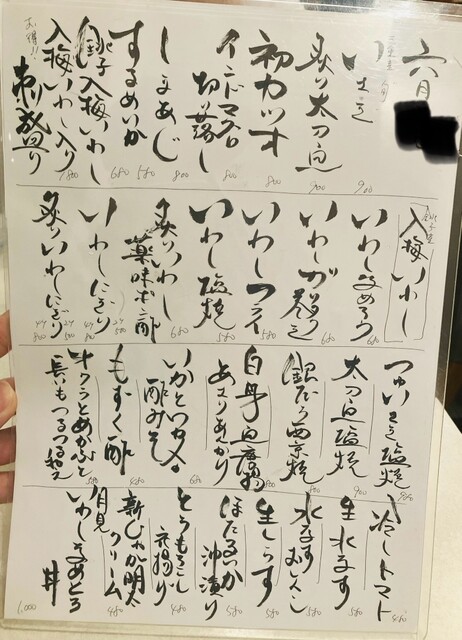 六月
いさき 900
炙り太刀魚 900
初カツオ 800
インドマグロ
切り落し 800
しまあじ 800
するめいか 580
銚子入梅いわし 680
お得!!
入梅いわし入り
刺盛り 1,800
銚子産
入梅いわし
いわしなめろう 680
いわしがり巻き 680
いわしフライ 580
いわし塩焼 580
炙りいわし
薬味ポン酢 680
いわしにぎり
炙りいわしにぎり
いさき塩焼
太刀魚塩焼 900
銀だら西京焼 900
白身魚唐揚 800
いかとわかめ
酢みそ 680
もずく酢 480
オクラとめかぶと
長いもつるつる和え 580
冷しトマト 480
生水なす 580
水なすおしんこ 580
生しらす 580
ほたるいか
沖漬け 580
とうもろこし
新じゃが明太
クリーム 480
月見
いわしなめろう丼
1,000